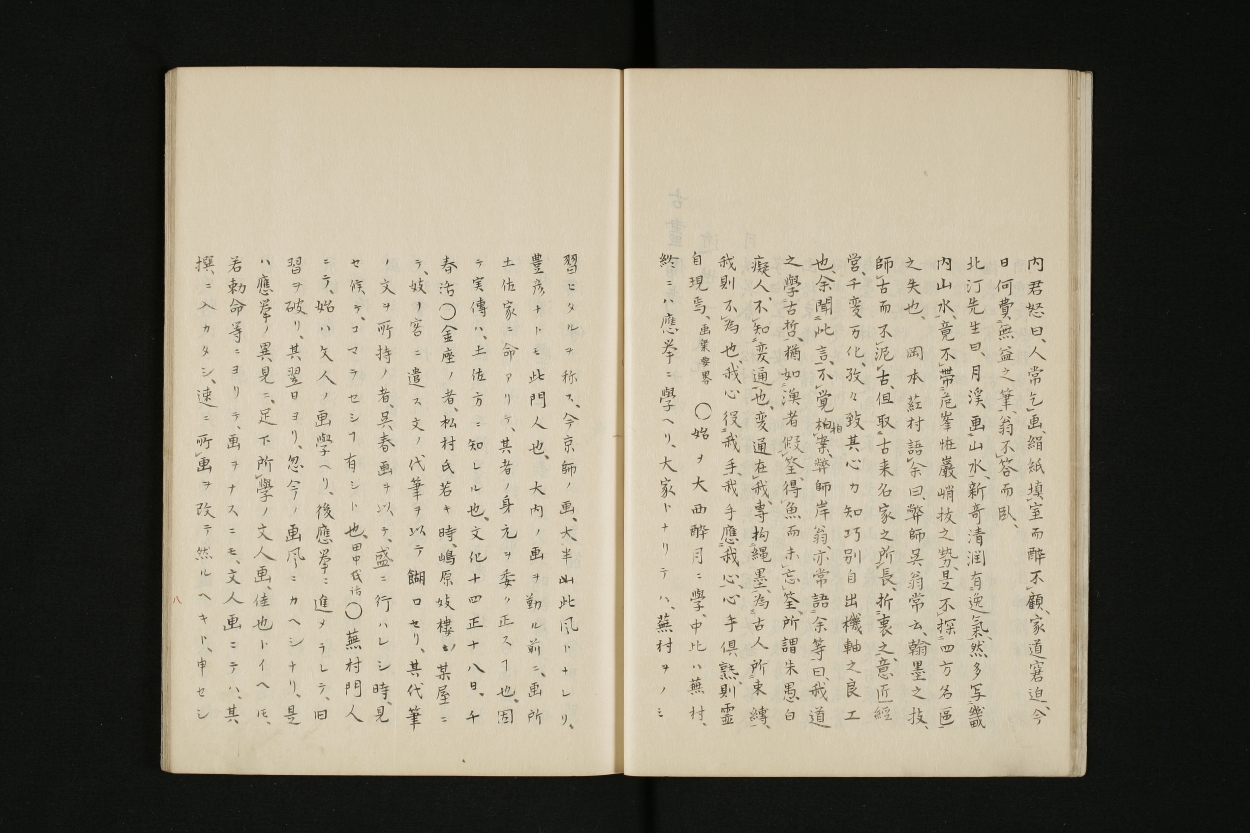 内君怒曰、人常乞画、絹紙填室而酔不顧、家道窘迫、今
日何費無益之筆、翁不答而臥、
北汀先生曰、月渓画山水、新奇清潤有逸氣、然多写畿
内山水、竟不帯危峯怪巖峭抜之勢、是不探四方名區
之失也、 岡本葒村語余曰、弊師呉翁常云、翰墨之技、
師古而不泥古、但取古来名家之所長、折衷之、意匠経
営、千変万化、孜々致其心力、知巧別自出機軸之良工
也、余聞此言、不覚拍案、弊師岸翁、亦常語余等曰、我道
之學古哲、猶如漁者假筌、得魚而未忘筌、所謂朱愚、白
癡人、不知変通也、変通在我、専拘縄墨、為古人所束縛、
我則不為也、我心役我手、我手應我心、心手倶熟、則霊
自現焉、画乗要畧 〇始ヲ大西酔月ニ學、中比ハ蕪村、
終ニハ應挙ニ學ヘリ、大家トナリテハ、蕪村ヲノミ
習ヒタルヲ称ス、今京師ノ画、大半此風トナレリ、
豊彦ナトモ此門人也、大内ノ画ヲ勤ル前ニ、画所
土佐家ニ命アリテ、其者ノ身元ヲ委ク正スヿ也、因
テ実傳ハ、土佐方ニ知レル也、文化十四正十八日、千
春活〇金座ノ者、松村氏若キ時、嶋原妓楼某屋ニ
テ、妓ヨリ客ニ遣ス文ノ代筆ヲ以テ餬口セリ、其代筆
ノ文ヲ所持ノ者、呉春画ヲ以テ、盛ニ行ハレシ時、見
セ候テ、コマラセシヿ有シト也、田中氏話〇蕪村門人
ニテ、始ハ文人ノ画學ヘリ、後應挙ニ進メラレテ、旧
習ヲ破リ、其翌日ヨリ、忽今ノ画風ニカヘシナリ、是
ハ應挙ノ異見ニ、足下所學ノ文人画、佳也トイヘ𪜈、
若勅命等ニヨリテ、画ヲナスニモ、文人画ニテハ、其
撰ニ入カタシ、速ニ所画ヲ改テ然ルヘキト、申セシ
八